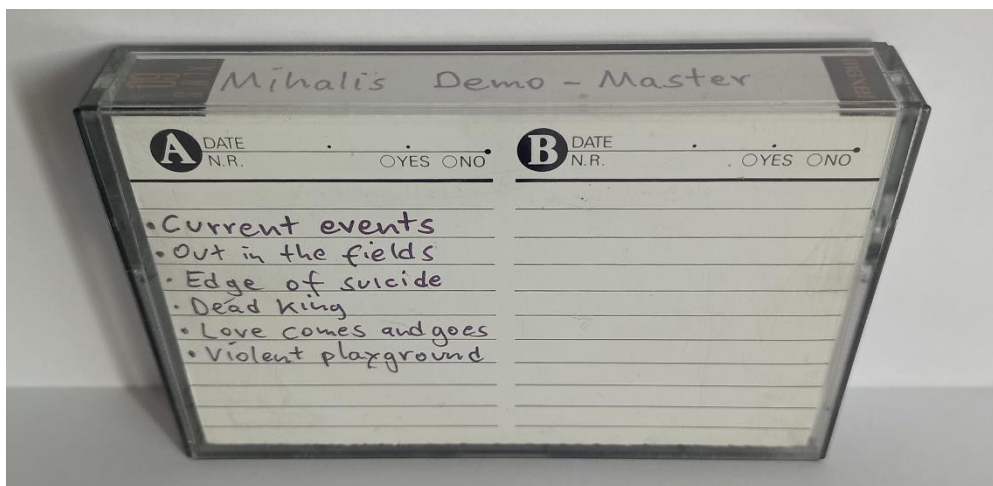 Mihalis Demo - Master
A DATE
N.R. YES NO
B DATE
N.R. YES NO
• Current events
• Out in the fields
• Edge of suicide
• Dead King
• Love comes and goes
• Violent playground